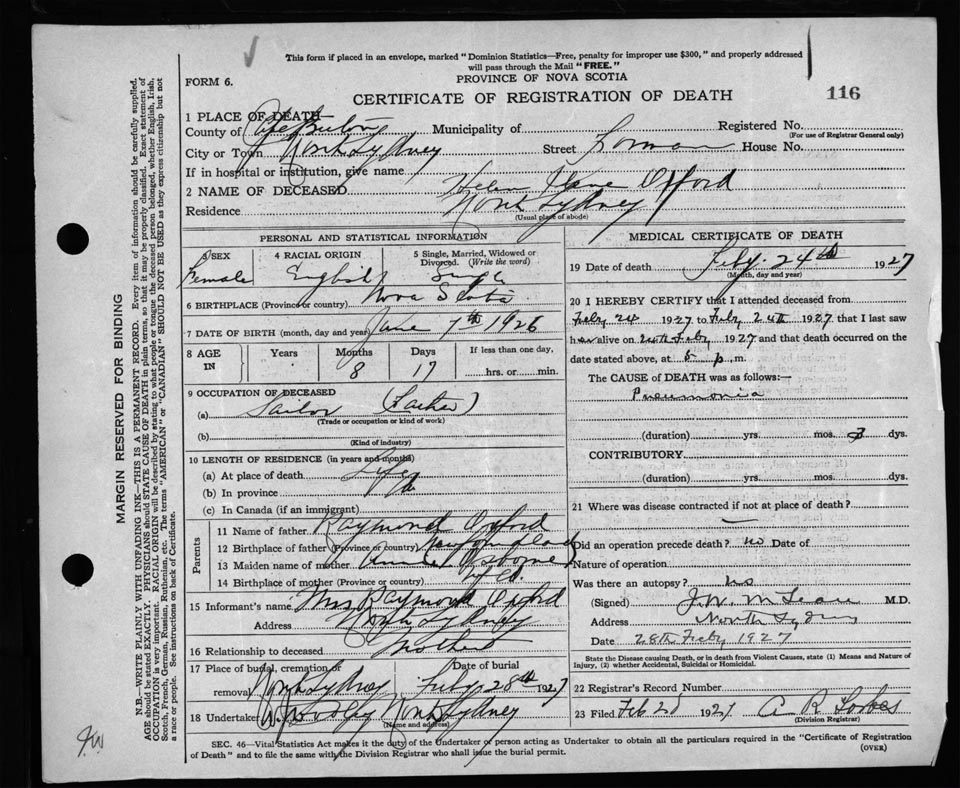 This form if placed in an envelope, marked "Dominion Statistics—Free, penalty for improper use $300," and properly addressed
will pass through the Mail "FREE."
FORM 6.
PROVINCE OF NOVA SCOTIA
CERTIFICATE OF REGISTRATION OF DEATH
116
1 PLACE OF DEATH
County of Cape Breton Municipality of Registered No.
(For use of Registrar General only)
City or Town North Sydney Street House No.
If in hospital or institution, give name
2 NAME OF DECEASED Helen Oxford
Residence North Sydney
(Usual place of abode)
PERSONAL AND STATISTICAL INFORMATION
3 SEX
Female
4 RACIAL ORIGIN
English
5 Single, Married, Widowed or
Divorced. (Write the word)
Single
6 BIRTHPLACE (Province or country) Nova Scotia
7 DATE OF BIRTH (month, day and year) June 7th 1926
8 AGE
IN
Years Months Days If less than one day,
8 17 hrs. or min.
9 OCCUPATION OF DECEASED
(a) Sailor (Father)
(Trade or occupation or kind of work)
(b)
(Kind of industry)
10 LENGTH OF RESIDENCE (in years and months)
(a) At place of death Life
(b) In province
(c) In Canada (if an immigrant)
Parents
11 Name of father Raymond Oxford
12 Birthplace of father (Province or country) Newfoundland
13 Maiden name of mother Annie Osborne
14 Birthplace of mother (Province or country)
15 Informant's name Mrs Raymond Oxford
Address North Sydney
16 Relationship to deceased Mother
17 Place of burial, cremation or
removal North Sydney
Date of burial
Feby 28th 1927
18 Undertaker North Sydney
(Name and address)
MEDICAL CERTIFICATE OF DEATH
19 Date of death Feby. 24th 1927
(Month, day and year)
20 I HEREBY CERTIFY that I attended deceased from
Feby 24 1927 to Feby 24th 1927 that I last saw
her alive on 24th Feby 1927 and that death occurred on the
date stated above, at 5 p. m.
The CAUSE of DEATH was as follows:—
Pneumonia
(duration) yrs. mos. 3 dys.
CONTRIBUTORY
(duration) yrs. mos. dys.
21 Where was disease contracted if not at place of death?
Did an operation precede death? no Date of
Nature of operation
Was there an autopsy? no
(Signed) J.W. McLean M.D.
Address North Sydney
Date 28th Feby 1927
State the Disease causing Death, or in death from Violent Causes, state (1) Means and Nature of
Injury, (2) whether Accidental, Suicidal or Homicidal.
22 Registrar's Record Number
23 Filed Feb 28 1927 A R Forbes
(Division Registrar)
SEC. 46—Vital Statistics Act makes it the duty of the Undertaker or person acting as Undertaker to obtain all the particulars required in the "Certificate of Registration
of Death" and to file the same with the Division Registrar who shall issue the burial permit.
(OVER)
MARGIN RESERVED FOR BINDING
N.B.—WRITE PLAINLY WITH UNFADING INK—THIS IS A PERMANENT RECORD. Every item of information should be carefully supplied.
AGE should be stated EXACTLY. PHYSICIANS should STATE CAUSE OF DEATH in plain terms, so that it may be properly classified. Exact statement of
OCCUPATION is very important. RACIAL ORIGIN will be described by stating to what people or tongue the deceased person belonged, whether English, Irish,
Scotch, French, German, Russian, Ruthenian, etc. The terms "AMERICAN" or "CANADIAN" SHOULD NOT BE USED as they express citizenship but not
a race or people. See instructions on back of Certificate.